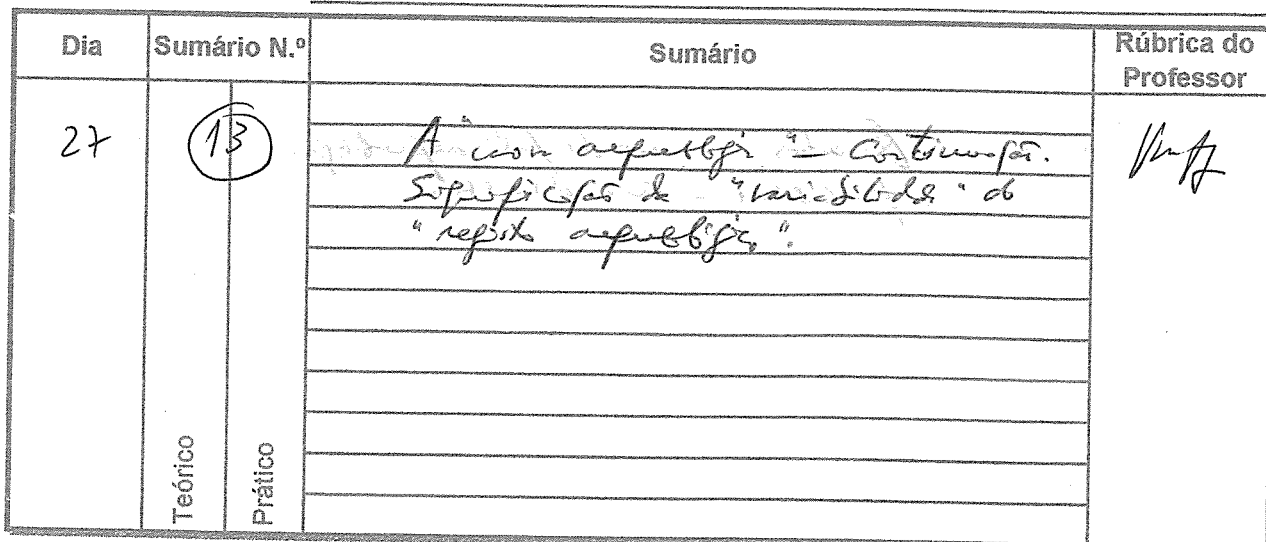 Dia
Sumário N.º
Sumário
Rúbrica do
Professor
27
13
A " arqueológica" – Continuação.
Significação da "variabilidade" do
"registo arqueológico".
Teórico
Prático